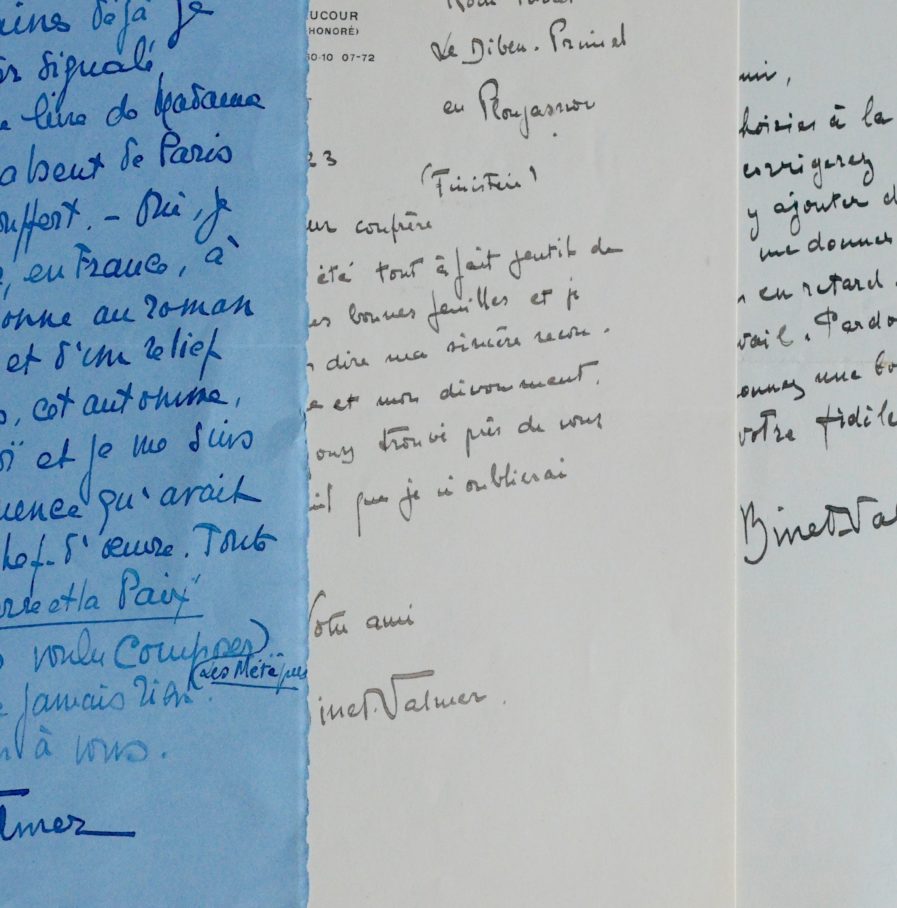 déjà je
signalé
livre de Madame
absent de Paris
ouffert. – Oui, je
, en France, à
onne au roman
et d'un relief
, cet automne,
et je me suis
uence qu'avait
hef-d'œuvre. Tout
rre et la Paix"
voulu composer
(Les Métèques
jamais rien.
à vous.
lmer
UCOUR
HONORÉ)
07-72
Le Diben. Primel
en Plougasnou
23
(Finistère)
ur confrère
été tout à fait gentil de
bonnes feuilles et je
dire ma sincère recon.
e et mon dévouement.
trouvé près de vous
que je n'oublierai
Votre ami
inet-Valmer.
mi,
hoisies à la
corrigerez
y ajouter d
me donner
en retard
vail. Pardo
onnez une bo
votre fidèle
Binet-Val